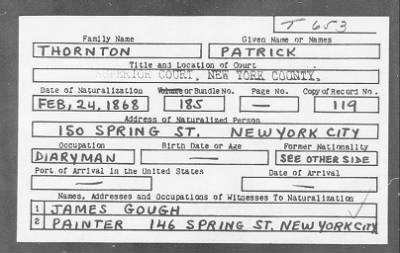 T 653
Family Name Given Name or Names
THORNTON PATRICK
Title and Location of Court
SUPERIOR COURT, NEW YORK COUNTY.
Date of Naturalization Volume or Bundle No. Page No. Copy of Record No.
FEB, 24, 1868 185 — 119
Address of Naturalized Person
150 SPRING ST. NEW YORK CITY
Occupation Birth Date or Age Former Nationality
DIARYMAN — SEE OTHER SIDE
Port of Arrival in the United States Date of Arrival
— —
Names, Addresses and Occupations of Witnesses To Naturalization
1 JAMES GOUGH
2 PAINTER 146 SPRING ST. NEW YORK CITY